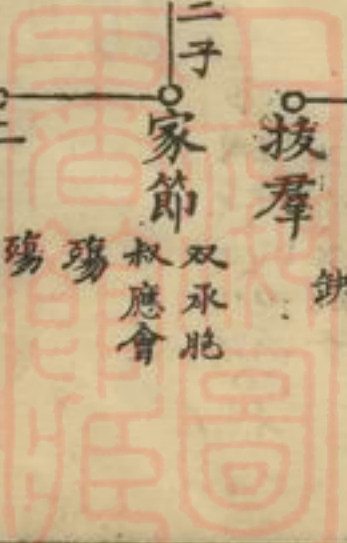 二子
拔羣
缺
家節
双承胞
叔應會
殤
殤
二